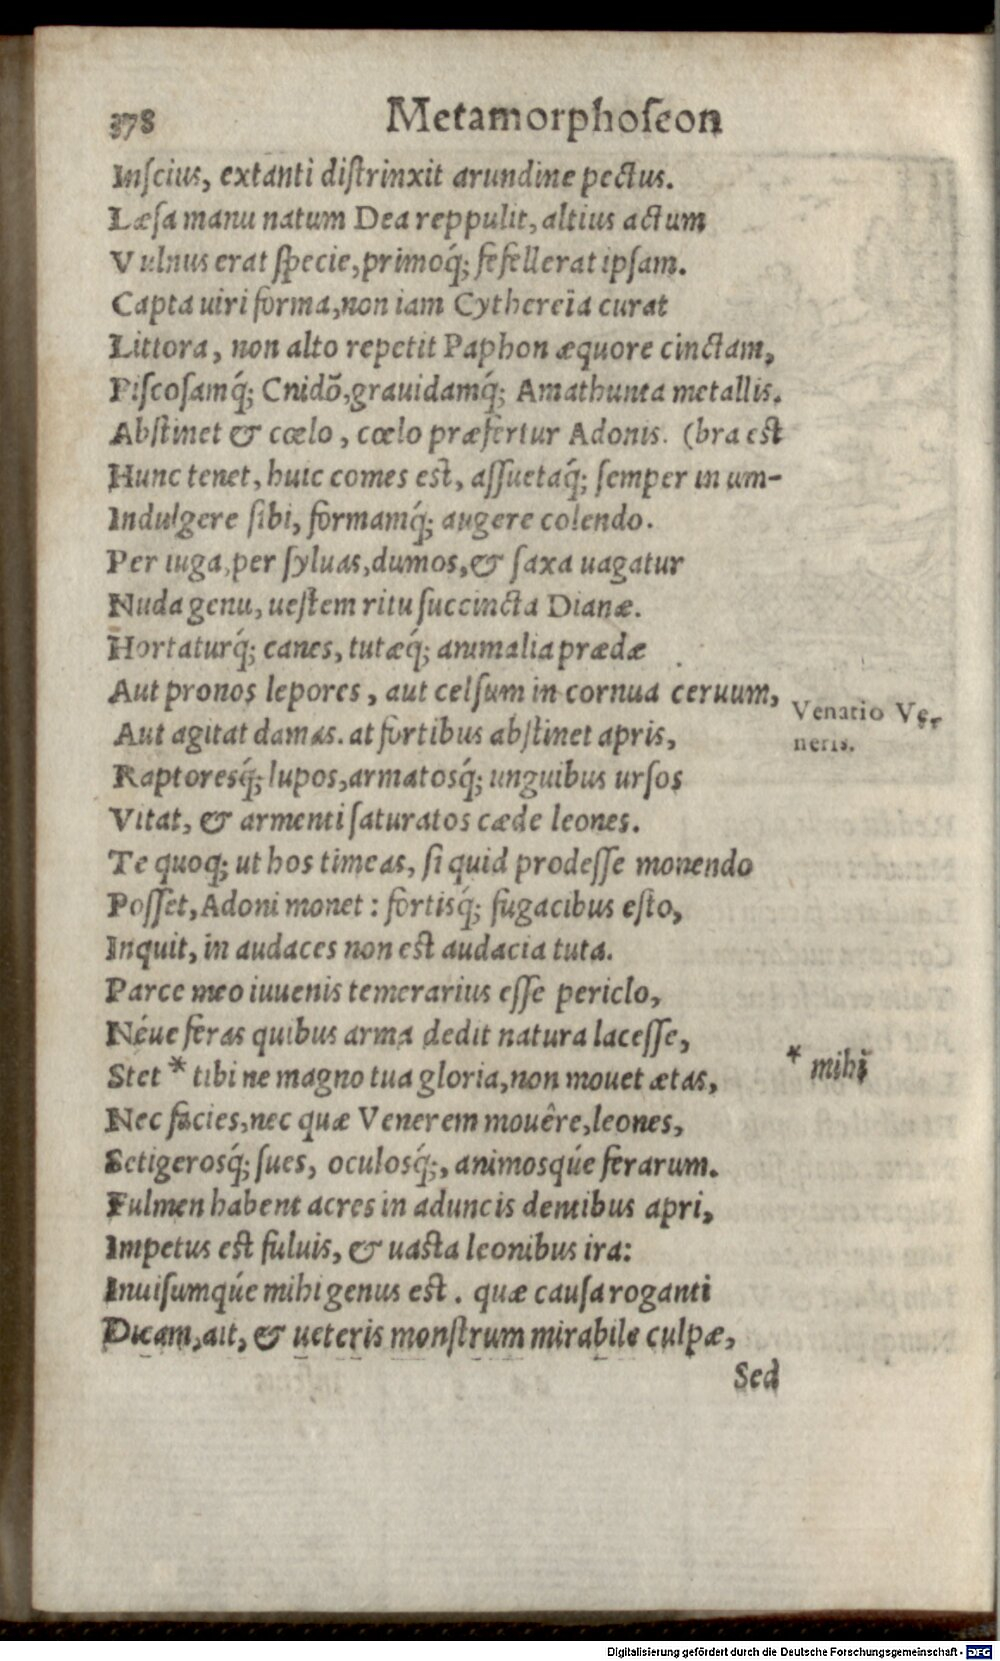 378 Metamorphoſeon
Inſcius, extanti diſtrinxit arundine pectus.
Læſa manu natum Dea reppulit, altius actum
Vulnus erat ſpecie, primoq́; fefellerat ipſam.
Capta uiri forma, non iam Cythereïa curat
Littora, non alto repetit Paphon æquore cinctam,
Piſcoſamq́; Cnidõ, grauidamq́; Amathunta metallis.
Abſtinet & cœlo, cœlo præfertur Adonis. (bra est
Hunc tenet, huic comes est, aſſuetaq́; ſemper in um-
Indulgere ſibi, formamq́; augere colendo.
Per iuga, per ſyluas, dumos, & ſaxa uagatur
Nuda genu, ueſtem ritu ſuccincta Dianæ.
Hortaturq́; canes, tutæq́; animalia prædæ
Aut pronos lepores, aut celſum in cornua ceruum,
Venatio Ve-
neris.
Aut agitat damas. at fortibus abſtinet apris,
Raptoresq́; lupos, armatosq́; unguibus urſos
Vitat, & armenti ſaturatos cæde leones.
Te quoq; ut hos timeas, ſi quid prodeſſe monendo
Poſſet, Adoni monet: fortisq́; fugacibus eſto,
Inquit, in audaces non est audacia tuta.
Parce meo iuuenis temerarius eſſe periclo,
Néue feras quibus arma dedit natura laceſſe,
Stet * tibi ne magno tua gloria, non mouet ætas,
* mihi
Nec facies, nec quæ Venerem mouêre, leones,
Setigerosq́; ſues, oculosq́;, animosqúe ferarum.
Fulmen habent acres in aduncis dentibus apri,
Impetus est fuluis, & uasta leonibus ira:
Inuiſumqúe mihi genus est. quæ cauſa roganti
Dicam, ait, & ueteris monſtrum mirabile culpæ,
Sed
Digitalisierung gefördert durch die Deutsche Forschungsgemeinschaft - DFG